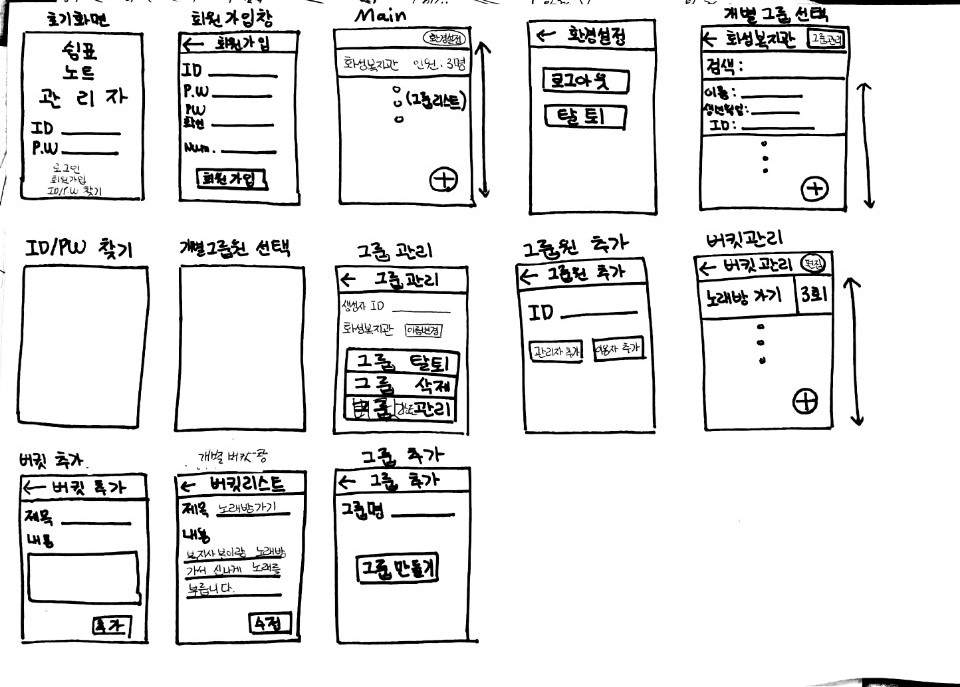 초기화면
쉼표
노트
관리자
ID
P.W
로그인
회원가입
ID/P.W 찾기
회원가입창
← 회원가입
ID
P.W
PW
확인
Num.
회원가입
Main
환경설정
화성복지관 인원. 3명
(그룹리스트)
+
← 환경설정
로그아웃
탈퇴
개별그룹 선택
← 화성복지관 그룹관리
검색:
이름:
생년월일:
ID:
+
ID/PW 찾기
개별그룹원 선택
그룹 관리
← 그룹관리
생성자 ID
화성복지관 이름변경
그룹 탈퇴
그룹 삭제
관리
그룹원 추가
← 그룹원 추가
ID
관리자 추가 이용자 추가
버킷관리
← 버킷관리 편집
노래방 가기 3회
+
버킷 추가
← 버킷 추가
제목
내용
추가
개별 버킷창
← 버킷리스트
제목 노래방가기
내용
복지사분이랑 노래방
가서 신나게 노래를
부릅니다.
수정
그룹 추가
← 그룹 추가
그룹명
그룹만들기